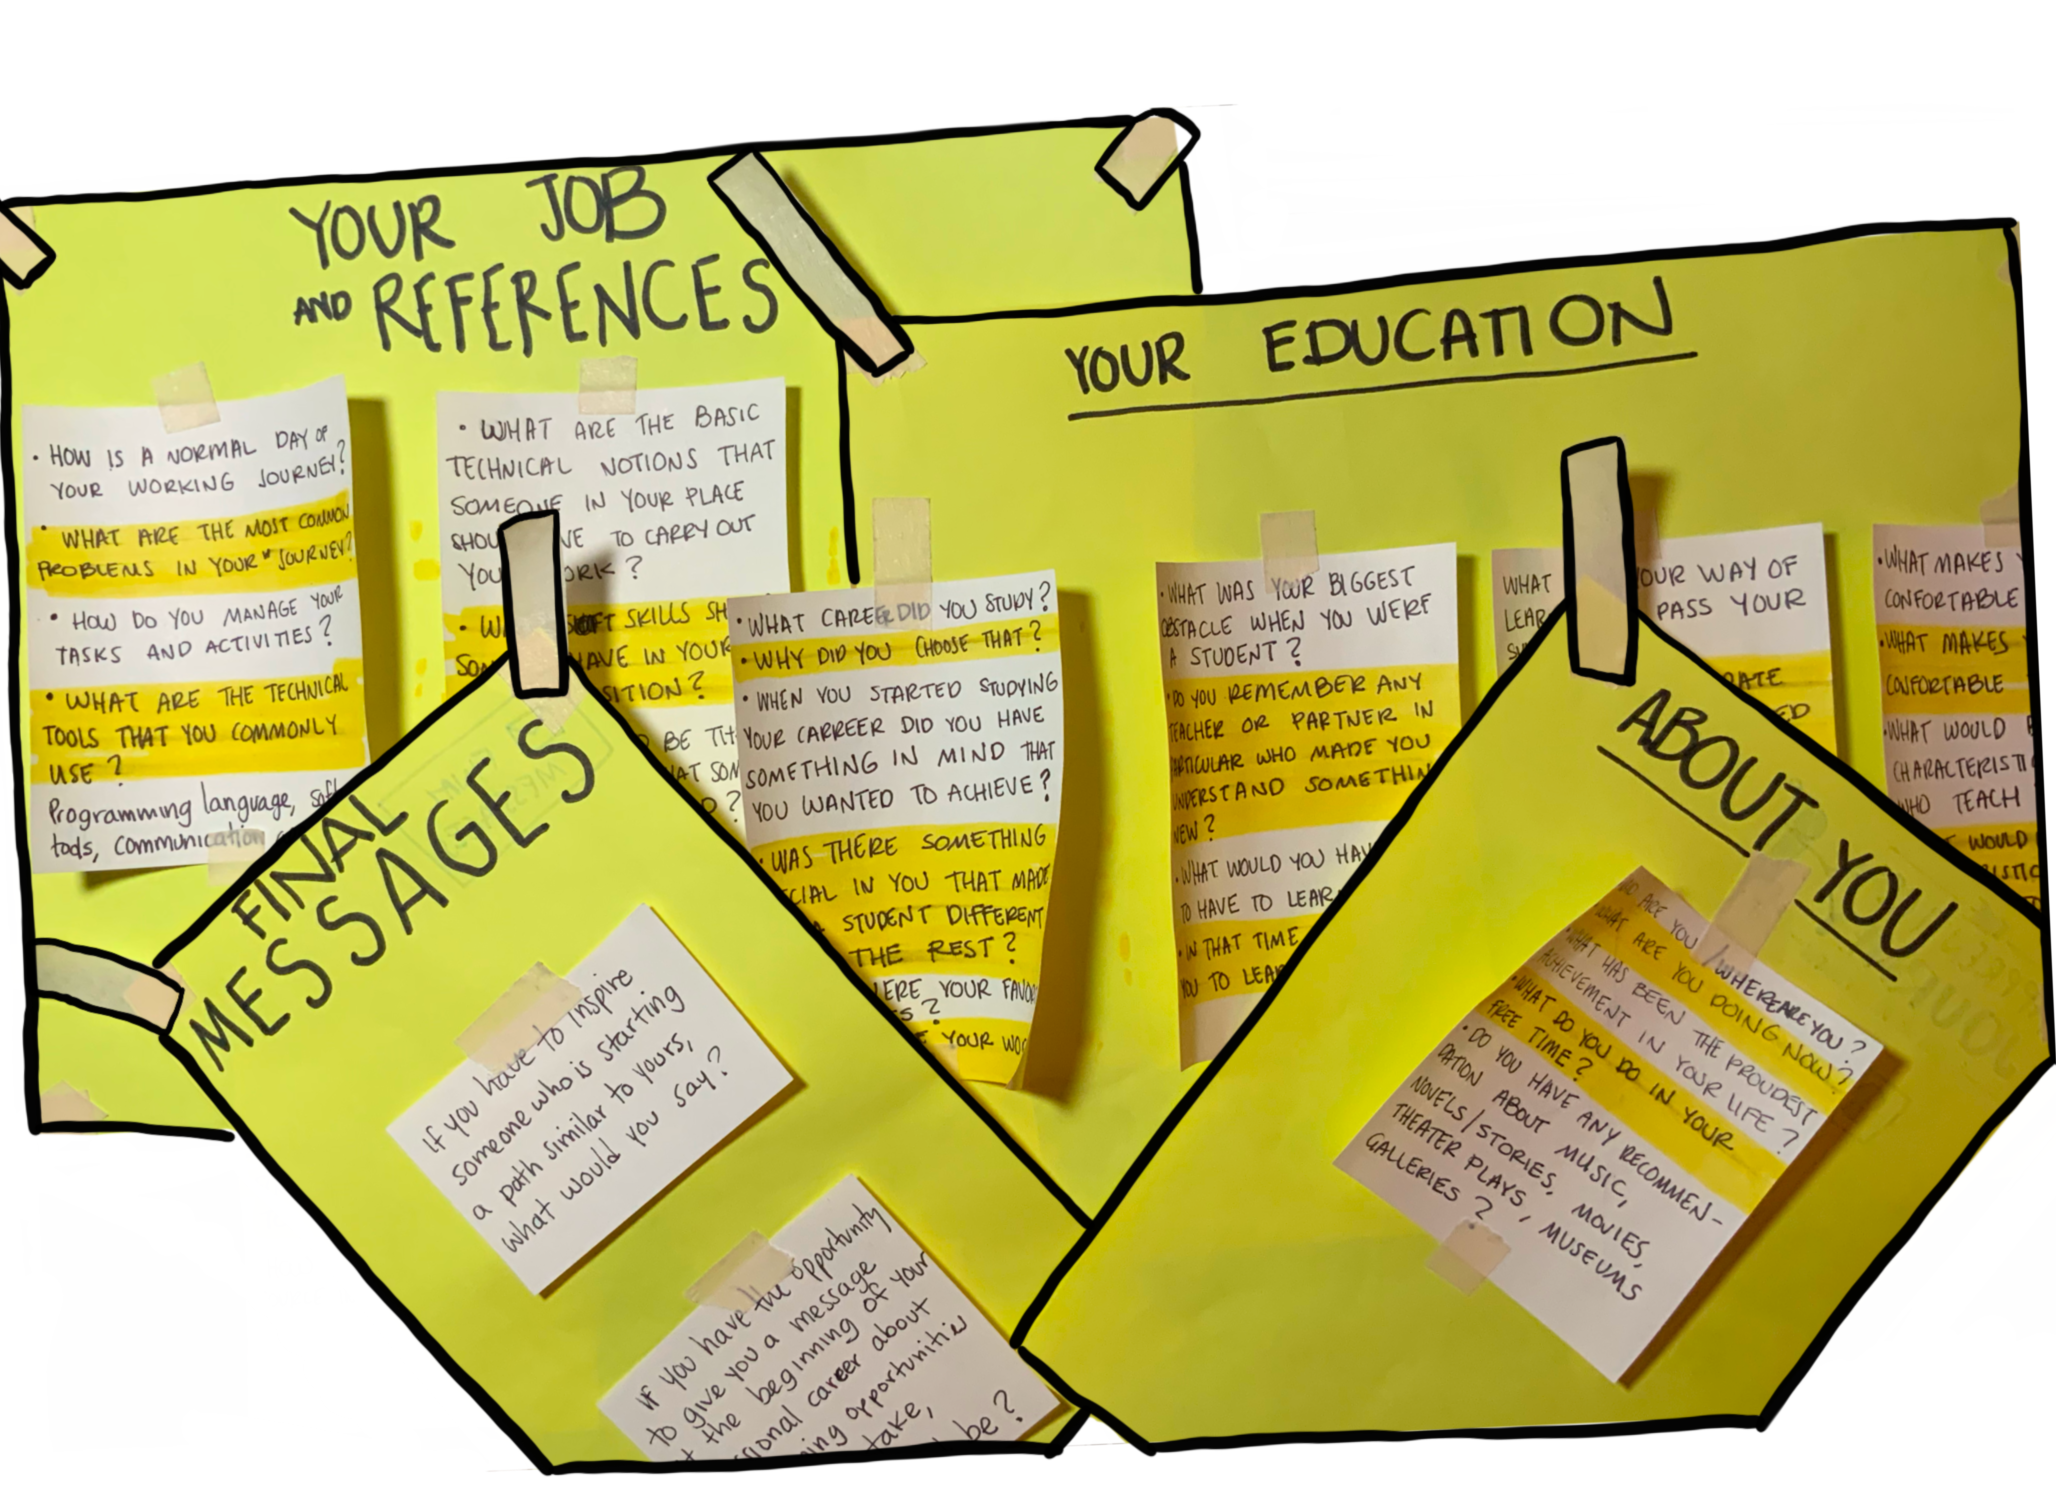 YOUR JOB
AND REFERENCES
• HOW IS A NORMAL DAY OF
YOUR WORKING JOURNEY?
• WHAT ARE THE MOST COMMON
PROBLEMS IN YOUR "JOURNEY?
• HOW DO YOU MANAGE YOUR
TASKS AND ACTIVITIES?
• WHAT ARE THE TECHNICAL
TOOLS THAT YOU COMMONLY
USE?
Programming language,
tools, communication
• WHAT ARE THE BASIC
TECHNICAL NOTIONS THAT
SOMEONE IN YOUR PLACE
TO CARRY OUT
?
• SOFT SKILLS
IN YOUR
?
BE
YOUR EDUCATION
• WHAT CAREER DID YOU STUDY?
• WHY DID YOU CHOOSE THAT?
• WHEN YOU STARTED STUDYING
YOUR CARREER DID YOU HAVE
SOMETHING IN MIND THAT
YOU WANTED TO ACHIEVE?
• WAS THERE SOMETHING
IN YOU THAT MADE
STUDENT DIFFERENT
THE REST?
YOUR
YOUR
• WHAT WAS YOUR BIGGEST
OBSTACLE WHEN YOU WERE
A STUDENT?
• DO YOU REMEMBER ANY
TEACHER OR PARTNER IN
PARTICULAR WHO MADE YOU
UNDERSTAND SOMETHING
NEW?
• WHAT WOULD YOU
TO HAVE TO
• IN THAT TIME
YOU TO
WHAT YOUR WAY OF
PASS YOUR
• WHAT MAKES
CONFORTABLE
• WHAT MAKES
CONFORTABLE
• WHAT WOULD
WHO TEACH
WOULD
FINAL
MESSAGES
If you have to inspire
someone who is starting
a path similar to yours,
what would you say?
If you have the opportunity
to give you a message
the beginning of your
career about
opportunities
take,
be?
ABOUT YOU
WHO ARE YOU / WHERE ARE YOU?
WHAT ARE YOU DOING NOW?
• WHAT HAS BEEN THE PROUDEST
ACHIEVEMENT IN YOUR LIFE?
• WHAT DO YOU DO IN YOUR
FREE TIME?
• DO YOU HAVE ANY RECOMMEN-
DATION ABOUT MUSIC,
NOVELS/STORIES, MOVIES,
THEATER PLAYS, MUSEUMS
GALLERIES?